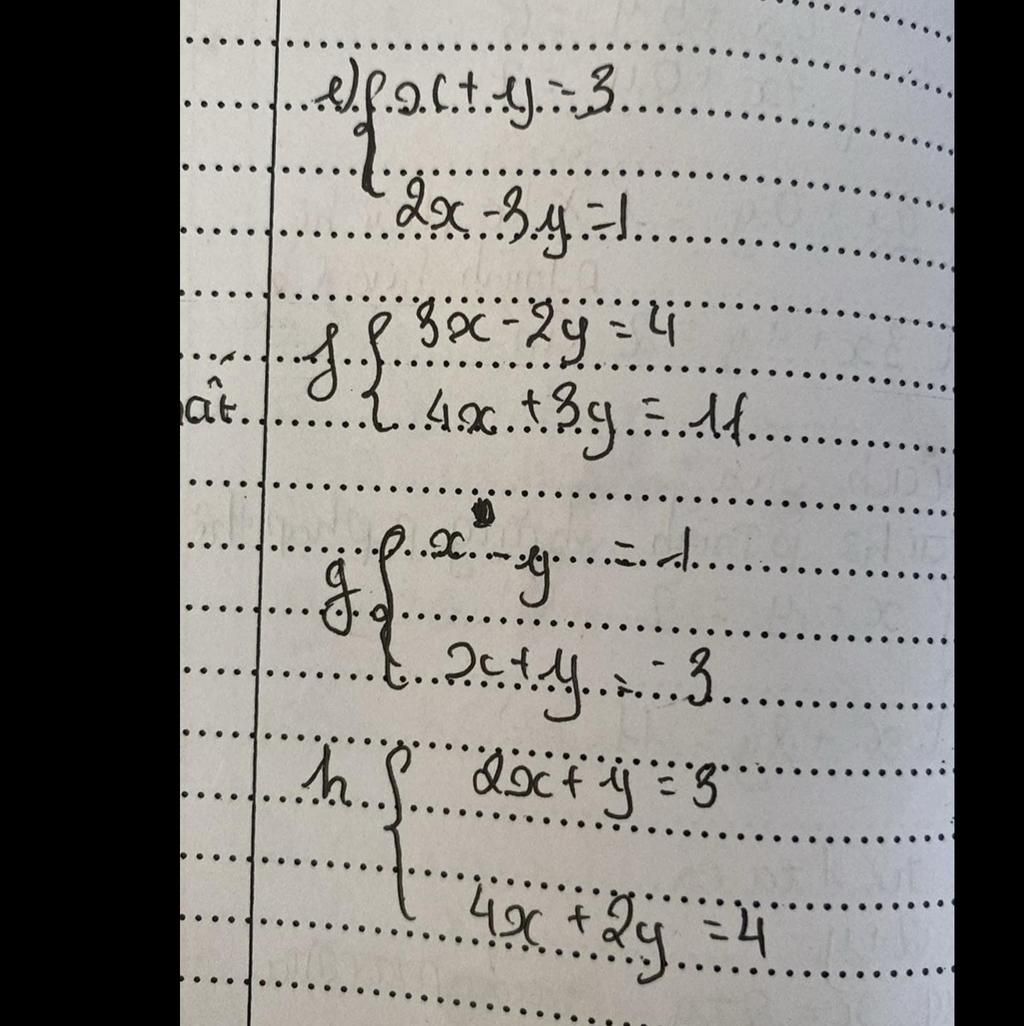 e) { x + y = 3
2x - 3y = 1
f { 3x - 2y = 4
ất
4x + 3y = 11
g { x - y = 1
x + y = 3
h { 2x + y = 3
4x + 2y = 4